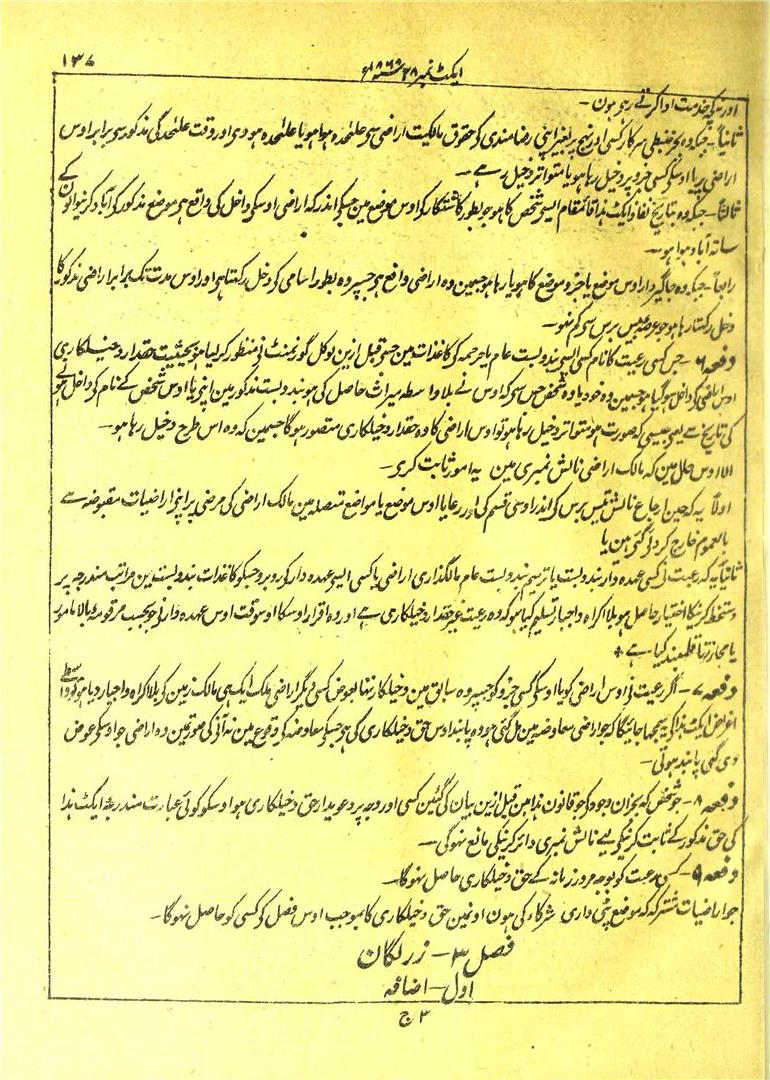 ایکٹ نمبر ۲۸ سنہ ۱۸۶۸ء
۱۳۷
اور یہ کہ خدمت ادا کرتے رہے ہون ۔
ثانیاً ۔ جبکہ وہ بجز ضبطی سرکار کسی اور نہج پر بغیر اپنی رضامندی کو حقوق مالکیت اراضی سے علٰحدہ ہوا ہو یا علٰحدہ ہووی اور وقت علٰحدگی مذکور سے برابر اوس
اراضی پر یا اوسکے کسی جزو پر دخیل رہا ہو یا متواتر دخیل رہے ۔
ثالثاً ۔ جبکہ وہ بتاریخ نفاذ ایکٹ ہذا قائمقام ایسے شخص کا ہو جو بطور کاشتکار کو اوس موضع مین جسکے اندر کہ اراضی اوسکی داخل کی واقع ہے موضع مذکور کو آباد کرنیوالون کے
ساتہ آباد ہوا ہو ۔
رابعاً ۔ جبکہ وہ جاگیردار اوس موضع یا جزو موضع کا ہو یا رہا ہو جسمین وہ اراضی واقع ہے جسپر وہ بطور اسامی کے دخل رکہتا ہے اور اوس مدت تک برابر اراضی مذکور کا
دخل رکہتا رہا ہو جو عرصہ بیس برس سے کم نہو ۔
دفعہ ۶ ۔ جس کسی رعیت کا نام کسی ایسے بندوبست عام یا ترجمہ کے کاغذات مین جسکو قبل ازین لوکل گورنمنٹ نے منظور کر لیا ہو بحیثیت حقدار دخیلکاری
اوس اراضی کے داخل ہو گیا ہو جسمین وہ خود یا وہ شخص جس سے کہ اوس نے بلا واسطہ میراث حاصل کی ہو بندوبست مذکور مین اپنے یا اوس شخص کے نام کے داخل ہونے
کی تاریخ سے یعنی جیسی کہ صورت ہو متواتر دخیل رہا ہو تو اوس اراضی کا وہ حقدار دخیلکاری متصور ہوگا جسمین کہ وہ اس طرح دخیل رہا ہو ۔
الا اوس حال مین کہ مالک اراضی نالش نمبری مین یہ امور ثابت کرے ۔
اولاً یہ کہ حین ارجاع نالش تیس برس کے اندر اوسی قسم کی اور رعایا اوس موضع یا مواضع متصلہ مین مالک اراضی کی مرضی پر اپنے اراضیات مقبوضہ سے
بالعموم خارج کر دئے گئے ہین یا
ثانیاً یہ کہ رعیت نے کسی عہدہ دار بندوبست یا ترمیم بندوبست عام مالگذاری اراضی یا کسی ایسے عہدہ دار کے روبرو جسکو کاغذات بندوبست مین مراتب مندرجہ پر
دستخط کرنیکا اختیار حاصل ہو بلا اکراہ و اجبار تسلیم کیا ہو کہ وہ رعیت غیر حقدار دخیلکاری ہے اور وہ اقرار اوسکا اوسوقت اوس عہدہ دار نے جو بحسب مرقومہ بالا مامور
یا مجاز تہا قلمبند کیا ہے ٭
دفعہ ۷ ۔ اگر رعیت نے اوس اراضی کو یا اوسکے کسی جزو کو جسپر وہ سابق مین دخیلکار تہا بعوض کسی دیگر اراضی ملک ایک ہی مالک زمین کے بلا اکراہ و اجبار دیا ہو تو واسطے
اغراض ایکٹ ہذا کے سمجہا جائیگا کہ جو اراضی معاوضہ مین مل گئی ہو وہ پابند اوس حق دخیلکاری کی ہے جسکو معاوضہ کے وقوع مین نہ آنے کی صورتمین وہ اراضی جو اوسکے عوض
دی گئی پابند ہوتی ۔
دفعہ ۸ ۔ جو شخص کہ بجز ان وجوہ کے جو قانون ہذا مین قبل ازین بیان کی گئین کسی اور وجہ پر دعویدار حق دخیلکاری ہو اوسکو کوئی عبارت مندرجہ ایکٹ ہذا
کی حق مذکور کے ثابت کرنیکے لیے نالش نمبری دائر کرنیکی مانع نہوگی ۔
دفعہ ۹ ۔ کسی رعیت کو بوجہ مرور زمانہ کے حق دخیلکاری حاصل نہوگا ۔
جو اراضیات مشترکہ کہ موضع پٹی داری شرکاء کی ہون اونمین حق دخیلکاری کا بموجب اوس فصل کے کسی کو حاصل نہوگا ۔
فصل ۳ ۔ زر لگان
اول ۔ اضافہ
۳ ج